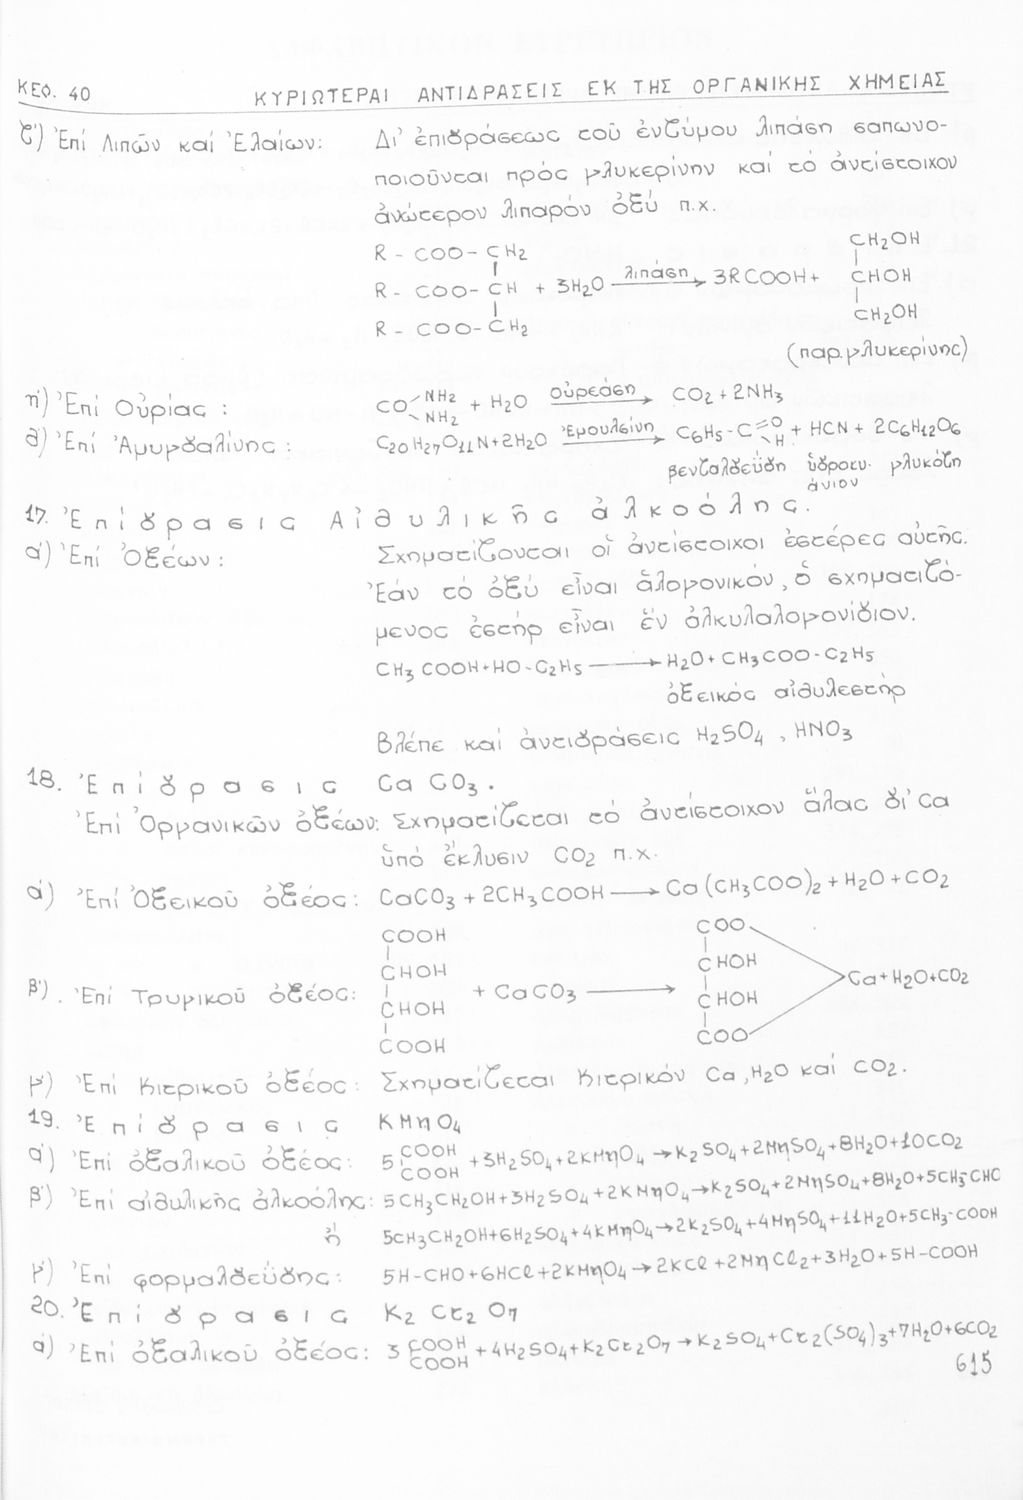 ΚΕΦ. 40 ΚΥΡΙΩΤΕΡΑΙ ΑΝΤΙΔΡΑΣΕΙΣ ΕΚ ΤΗΣ ΟΡΓΑΝΙΚΗΣ ΧΗΜΕΙΑΣ
ζ') Ἐπί Λιπῶν καί Ἐλαίων: Δι' ἐπιδράσεως τοῦ ἐνζύμου λιπάση σαπωνο-
ποιοῦνται πρός γλυκερίνην καί τό ἀντίστοιχον
ἀνώτερον λιπαρόν ὀξύ π.χ.
R - COO - CH2 CH2OH
R - COO - CH + 3H2O λιπάση → 3RCOOH + CHOH
R - COO - CH2 CH2OH
(παρ. γλυκερίνης)
η') Ἐπί Οὐρίας : CO NH2 NH2 + H2O οὐρεάση → CO2 + 2NH3
θ') Ἐπί Ἀμυγδαλίνης : C20H27O11N + 2H2O Ἐμουλσίνη → C6H5-C =O -H + HCN + 2C6H12O6
βενζαλδεΰδη ὑδροκυ- γλυκόζη
άνιον
17. Ἐπίδρασις Αἰθυλικῆς ἀλκοόλης.
α') Ἐπί Ὀξέων : Σχηματίζονται οἱ ἀντίστοιχοι ἐστέρες αὐτῆς.
Ἐάν τό ὀξύ εἶναι ἁλογονικόν, ὁ σχηματιζό-
μενος ἐστήρ εἶναι ἕν ἀλκυλαλογονίδιον.
CH3COOH + HO-C2H5 → H2O + CH3COO-C2H5
ὀξεικός αἰθυλεστήρ
Βλέπε καί ἀντιδράσεις H2SO4 , HNO3
18. Ἐπίδρασις CaCO3.
Ἐπί Ὀργανικῶν ὀξέων: Σχηματίζεται τό ἀντίστοιχον ἅλας δι' Ca
ὑπό ἔκλυσιν CO2 π.χ.
α') Ἐπί Ὀξεικοῦ ὀξέος : CaCO3 + 2CH3COOH → Ca(CH3COO)2 + H2O + CO2
COOH COO
CHOH CHOH
β'). Ἐπί Τρυγικοῦ ὀξέος: + CaCO3 → Ca + H2O + CO2
CHOH CHOH
COOH COO
γ') Ἐπί Κιτρικοῦ ὀξέος : Σχηματίζεται Κιτρικόν Ca, H2O καί CO2.
19. Ἐπίδρασις KMnO4
α') Ἐπί ὀξαλικοῦ ὀξέος: 5 COOH COOH + 3H2SO4 + 2KMnO4 → K2SO4 + 2MnSO4 + 8H2O + 10CO2
β') Ἐπί αἰθυλικῆς ἀλκοόλης: 5CH3CH2OH + 3H2SO4 + 2KMnO4 → K2SO4 + 2MnSO4 + 8H2O + 5CH3-CHO
ἤ 5CH3CH2OH + 6H2SO4 + 4KMnO4 → 2K2SO4 + 4MnSO4 + 11H2O + 5CH3-COOH
γ') Ἐπί φορμαλδεΰδης : 5H-CHO + 6HCl + 2KMnO4 → 2KCl + 2MnCl2 + 3H2O + 5H-COOH
20. Ἐπίδρασις K2Cr2O7
α') Ἐπί ὀξαλικοῦ ὀξέος: 3 COOH COOH + 4H2SO4 + K2Cr2O7 → K2SO4 + Cr2(SO4)3 + 7H2O + 6CO2
615